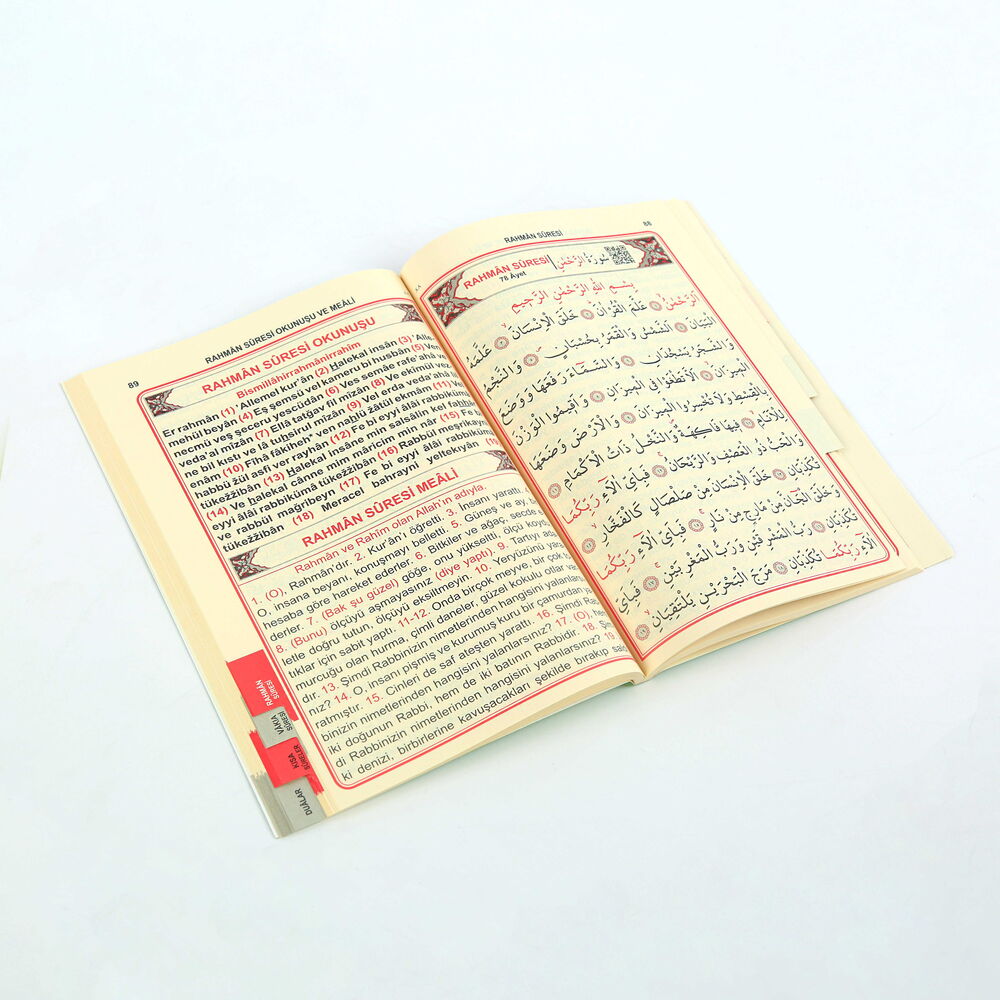 RAHMÂN SÛRESİ OKUNUŞU VE MEÂLİ
89
RAHMÂN SÛRESİ OKUNUŞU
Bismillâhirrahmânirrahim
Er rahmân (1) 'Allemel kur'ân (2) Ḣalekal insân (3) 'Alle-
mehül beyân (4) Eş şemsü vel kameru bi husbân (5) Ven
necmü veş şeceru yescüdân (6) Ves semâe rafe'ahâ
veda'al mîzân (7) Ellâ tatġav fil mîzân (8) Ve ekîmül vez
ne bil kıstı ve lâ tuḣsirul mîzân (9) Vel erda veda'ahâ lil
enâm (10) Fîhâ fâkiheh* ven naḣlü ẑâtül ekmâm (11) Vel
habbü ẑül asfi ver rayḣân (12) Fe bi eyyi âlâi rabbiküm
tükeẑẑibân (13) Ḣalekal insâne min salsâlin kel faḣḣâr
(14) Ve ḣalekal cânne mim mâricim min nâr (15) Fe bi
eyyi âlâi rabbikümâ tükeẑẑibân (16) Rabbül meşrikayn
ve rabbül maġribeyn (17) Fe bi eyyi âlâi rabbikümâ
tükeẑẑibân (18) Meracel bahrayni yeltekıyân
RAHMÂN SÛRESİ MEÂLİ
Rahmân ve Rahîm olan Allah'ın adıyla.
1. (O), Rahmân'dır. 2. Kur'ân'ı öğretti. 3. İnsanı yarattı. 4.
O, insana beyanı, konuşmayı belletti. 5. Güneş ve ay, bir
hesaba göre hareket ederler. 6. Bitkiler ve ağaç, secde e-
derler. 7. (Bak şu güzel) göğe, onu yükseltti, ölçü koydu.
8. (Bunu) ölçüyü aşmayasınız (diye yaptı). 9. Tartıyı ada-
letle doğru tutun, ölçüyü eksiltmeyin. 10. Yeryüzünü yara-
tıklar için sabit yaptı. 11-12. Onda birçok meyve, bir çok to-
murcuğu olan hurma, çimli daneler, güzel kokulu otlar var-
dır. 13. Şimdi Rabbinizin nimetlerinden hangisini yalanlarsı-
nız? 14. O, insanı pişmiş ve kurumuş kuru bir çamurdan ya-
ratmıştır. 15. Cinleri de saf ateşten yarattı. 16. Şimdi Rab-
binizin nimetlerinden hangisini yalanlarsınız? 17. (O),
iki doğunun Rabbi, hem de iki batının Rabbidir. 18. Şim-
di Rabbinizin nimetlerinden hangisini yalanlarsınız?
ki denizi, birbirlerine kavuşacakları şekilde bırakıp
RAHMÂN
SÛRESİ
VÂKIA
SÛRESİ
KISA
SÛRELER
DUÂLAR
RAHMÂN SÛRESİ
88
RAHMÂN SÛRESİ
78 Âyet
سُورَةُ الرَّحْمٰنِ
بِسْمِ اللّٰهِ الرَّحْمٰنِ الرَّحِيمِ
اَلرَّحْمٰنُ ۙ عَلَّمَ الْقُرْاٰنَ ۜ خَلَقَ الْاِنْسَانَ ۙ عَلَّمَهُ
الْبَيَانَ اَلشَّمْسُ وَالْقَمَرُ بِحُسْبَانٍ وَالنَّجْمُ
وَالشَّجَرُ يَسْجُدَانِ وَالسَّمَٓاءَ رَفَعَهَا وَوَضَعَ
الْمِيزَانَ اَلَّا تَطْغَوْا فِي الْمِيزَانِ وَاَقِيمُوا الْوَزْنَ
بِالْقِسْطِ وَلَا تُخْسِرُوا الْمِيزَانَ وَالْاَرْضَ وَضَعَهَا
لِلْاَنَامِ فِيهَا فَاكِهَةٌ وَالنَّخْلُ ذَاتُ الْاَكْمَامِ
وَالْحَبُّ ذُو الْعَصْفِ وَالرَّيْحَانُ فَبِاَيِّ اٰلَٓاءِ رَبِّكُمَا
تُكَذِّبَانِ خَلَقَ الْاِنْسَانَ مِنْ صَلْصَالٍ كَالْفَخَّارِ
وَخَلَقَ الْجَٓانَّ مِنْ مَارِجٍ مِنْ نَارٍ فَبِاَيِّ اٰلَٓاءِ رَبِّكُمَا
تُكَذِّبَانِ رَبُّ الْمَشْرِقَيْنِ وَرَبُّ الْمَغْرِبَيْنِ فَبِاَيِّ
اٰلَٓاءِ رَبِّكُمَا تُكَذِّبَانِ مَرَجَ الْبَحْرَيْنِ يَلْتَقِيَانِ